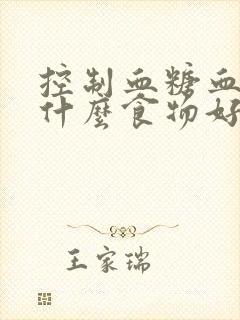 控制血糖血
什麼食物好
王家瑞